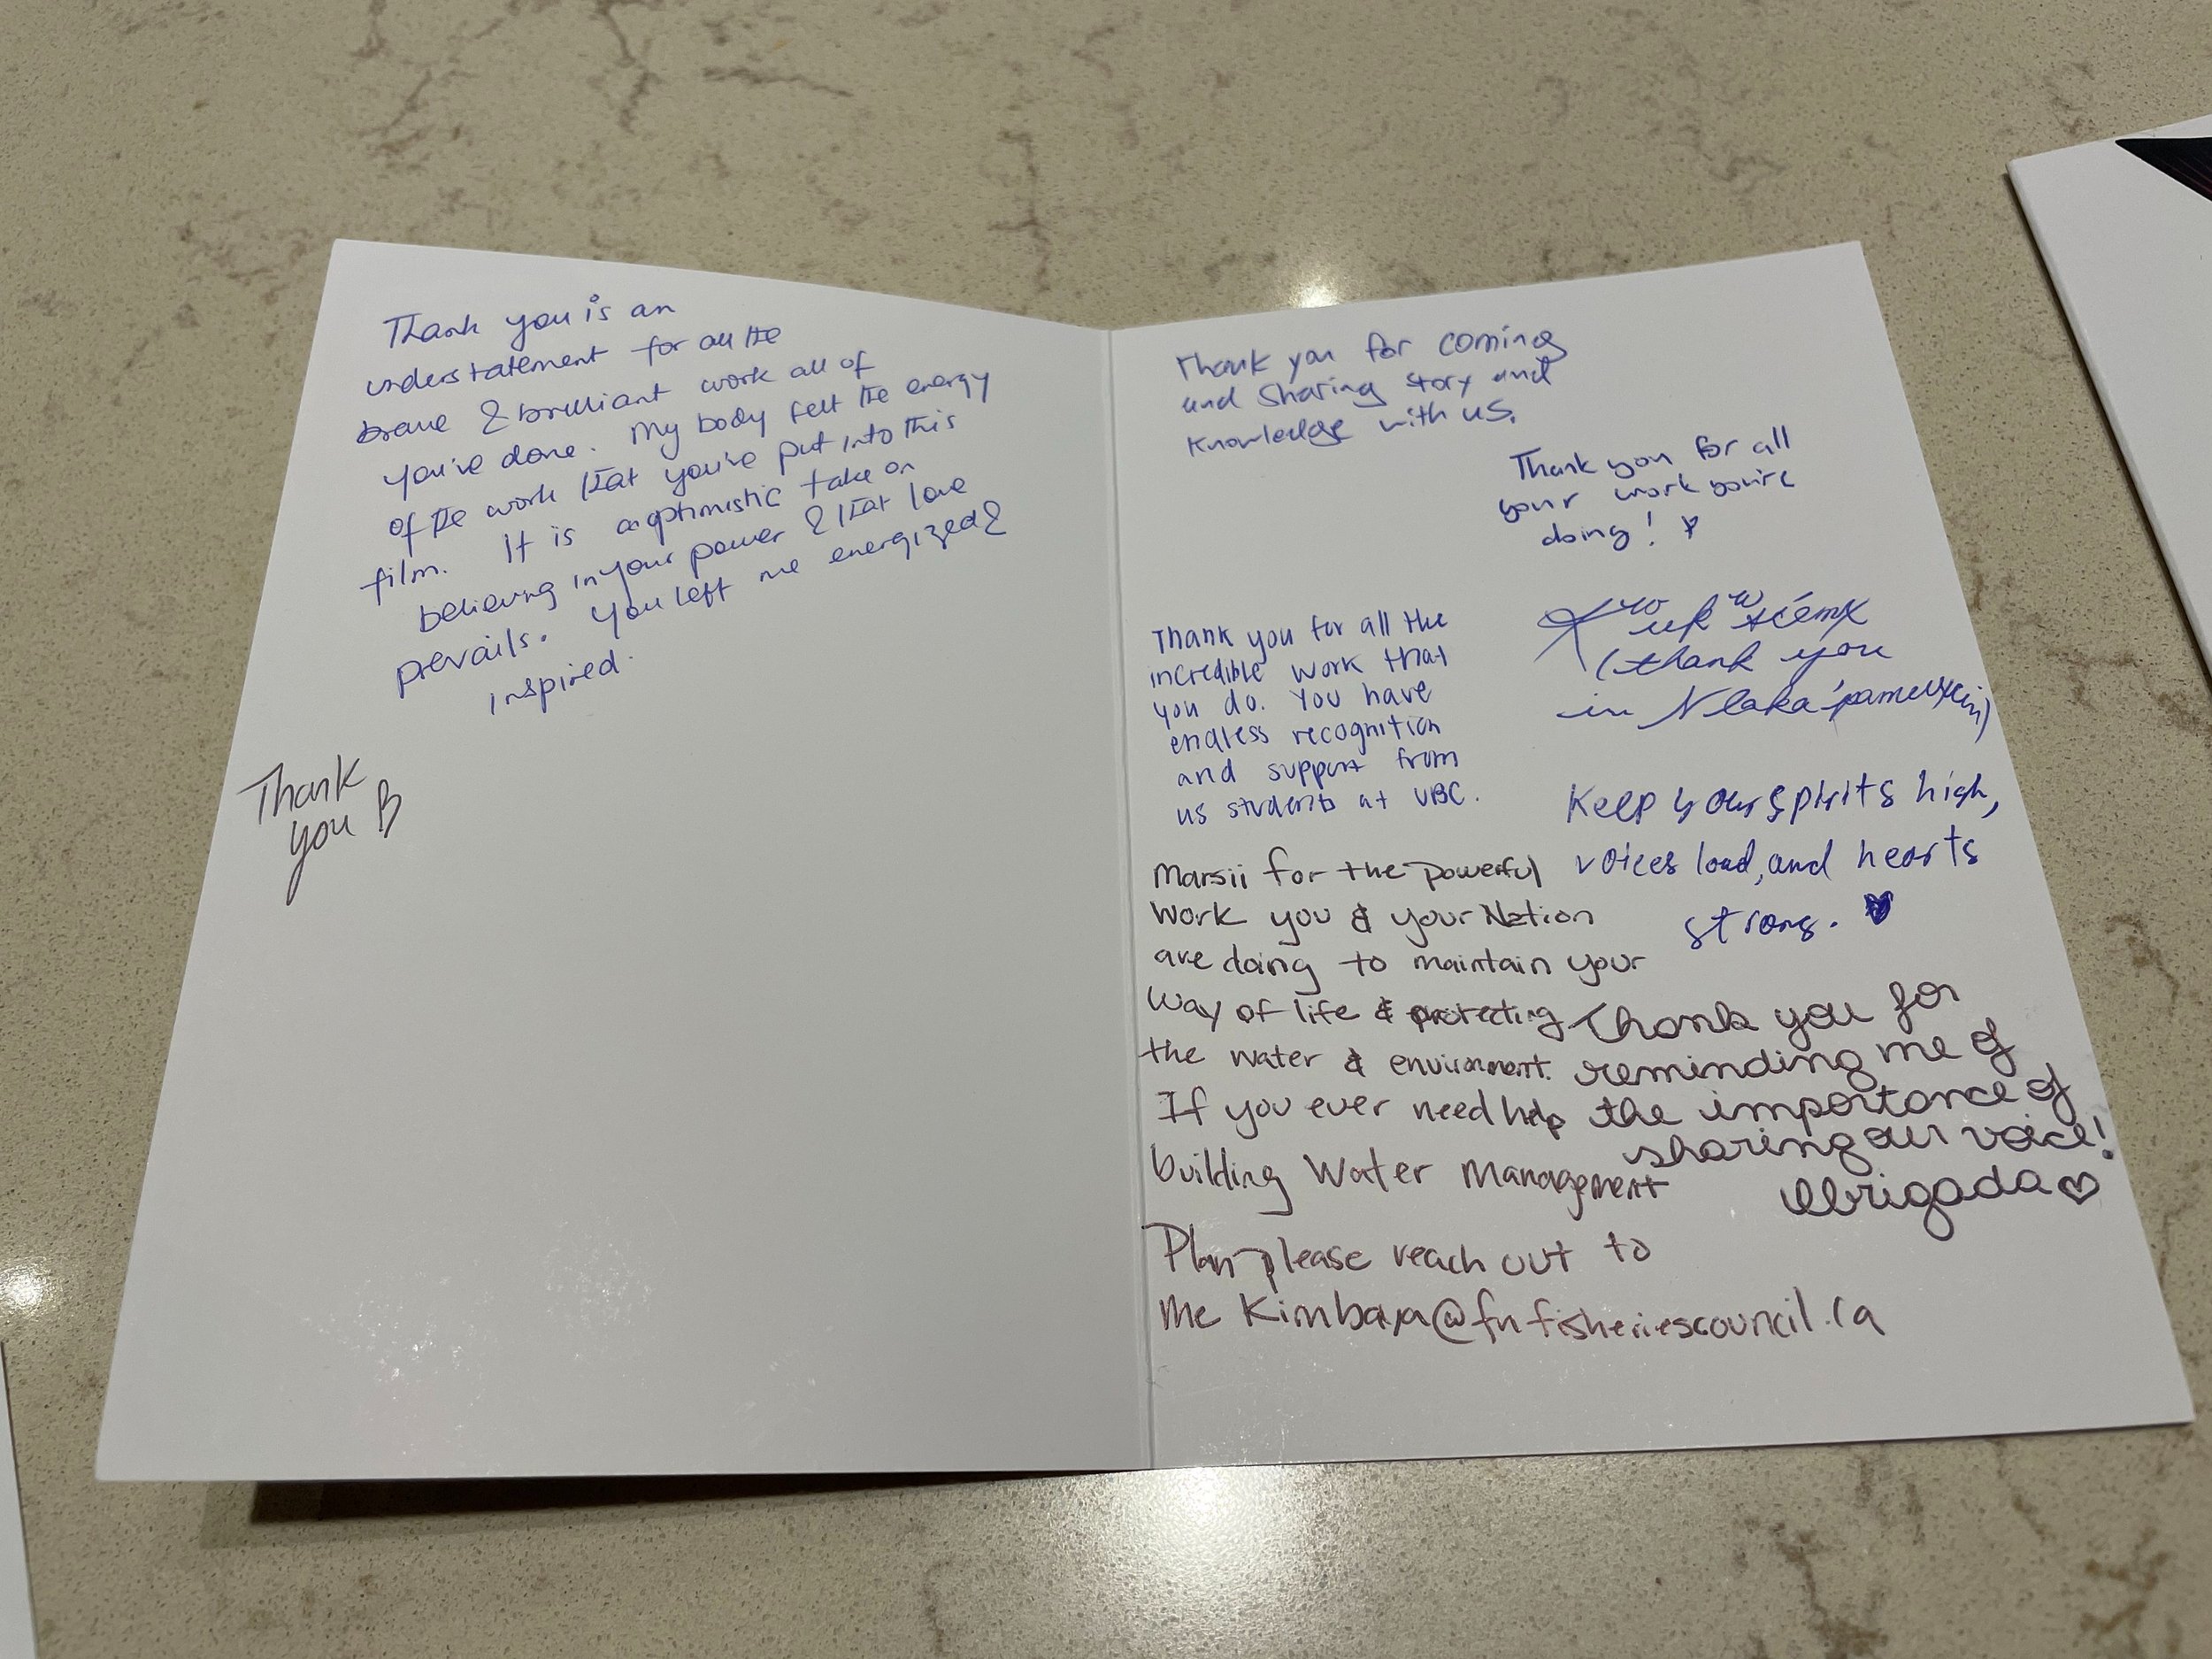 Thank you is an
understatement for all the
brave & brilliant work all of
you've done. My body felt the energy
of the work that you've put into this
film. It is an optimistic take on
believing in your power & that love
prevails. You left me energized &
inspired.
Thank
you B
Thank you for coming
and sharing story and
knowledge with us.
Thank you for all
your work you're
doing!
Thank you for all the
incredible work that
you do. You have
endless recognition
and support from
us students at UBC.
(thank you
in Nlaka'pamuxcin)
Keep your spirits high,
voices loud, and hearts
strong. ♥
Marsii for the powerful
work you & your Nation
are doing to maintain your
way of life & protecting
the water & environment.
If you ever need help
building Water Management
Plan please reach out to
me @fnfisheriescouncil.ca
Thank you for
reminding me of
the importance of
sharing our voice!
Obrigada ♡